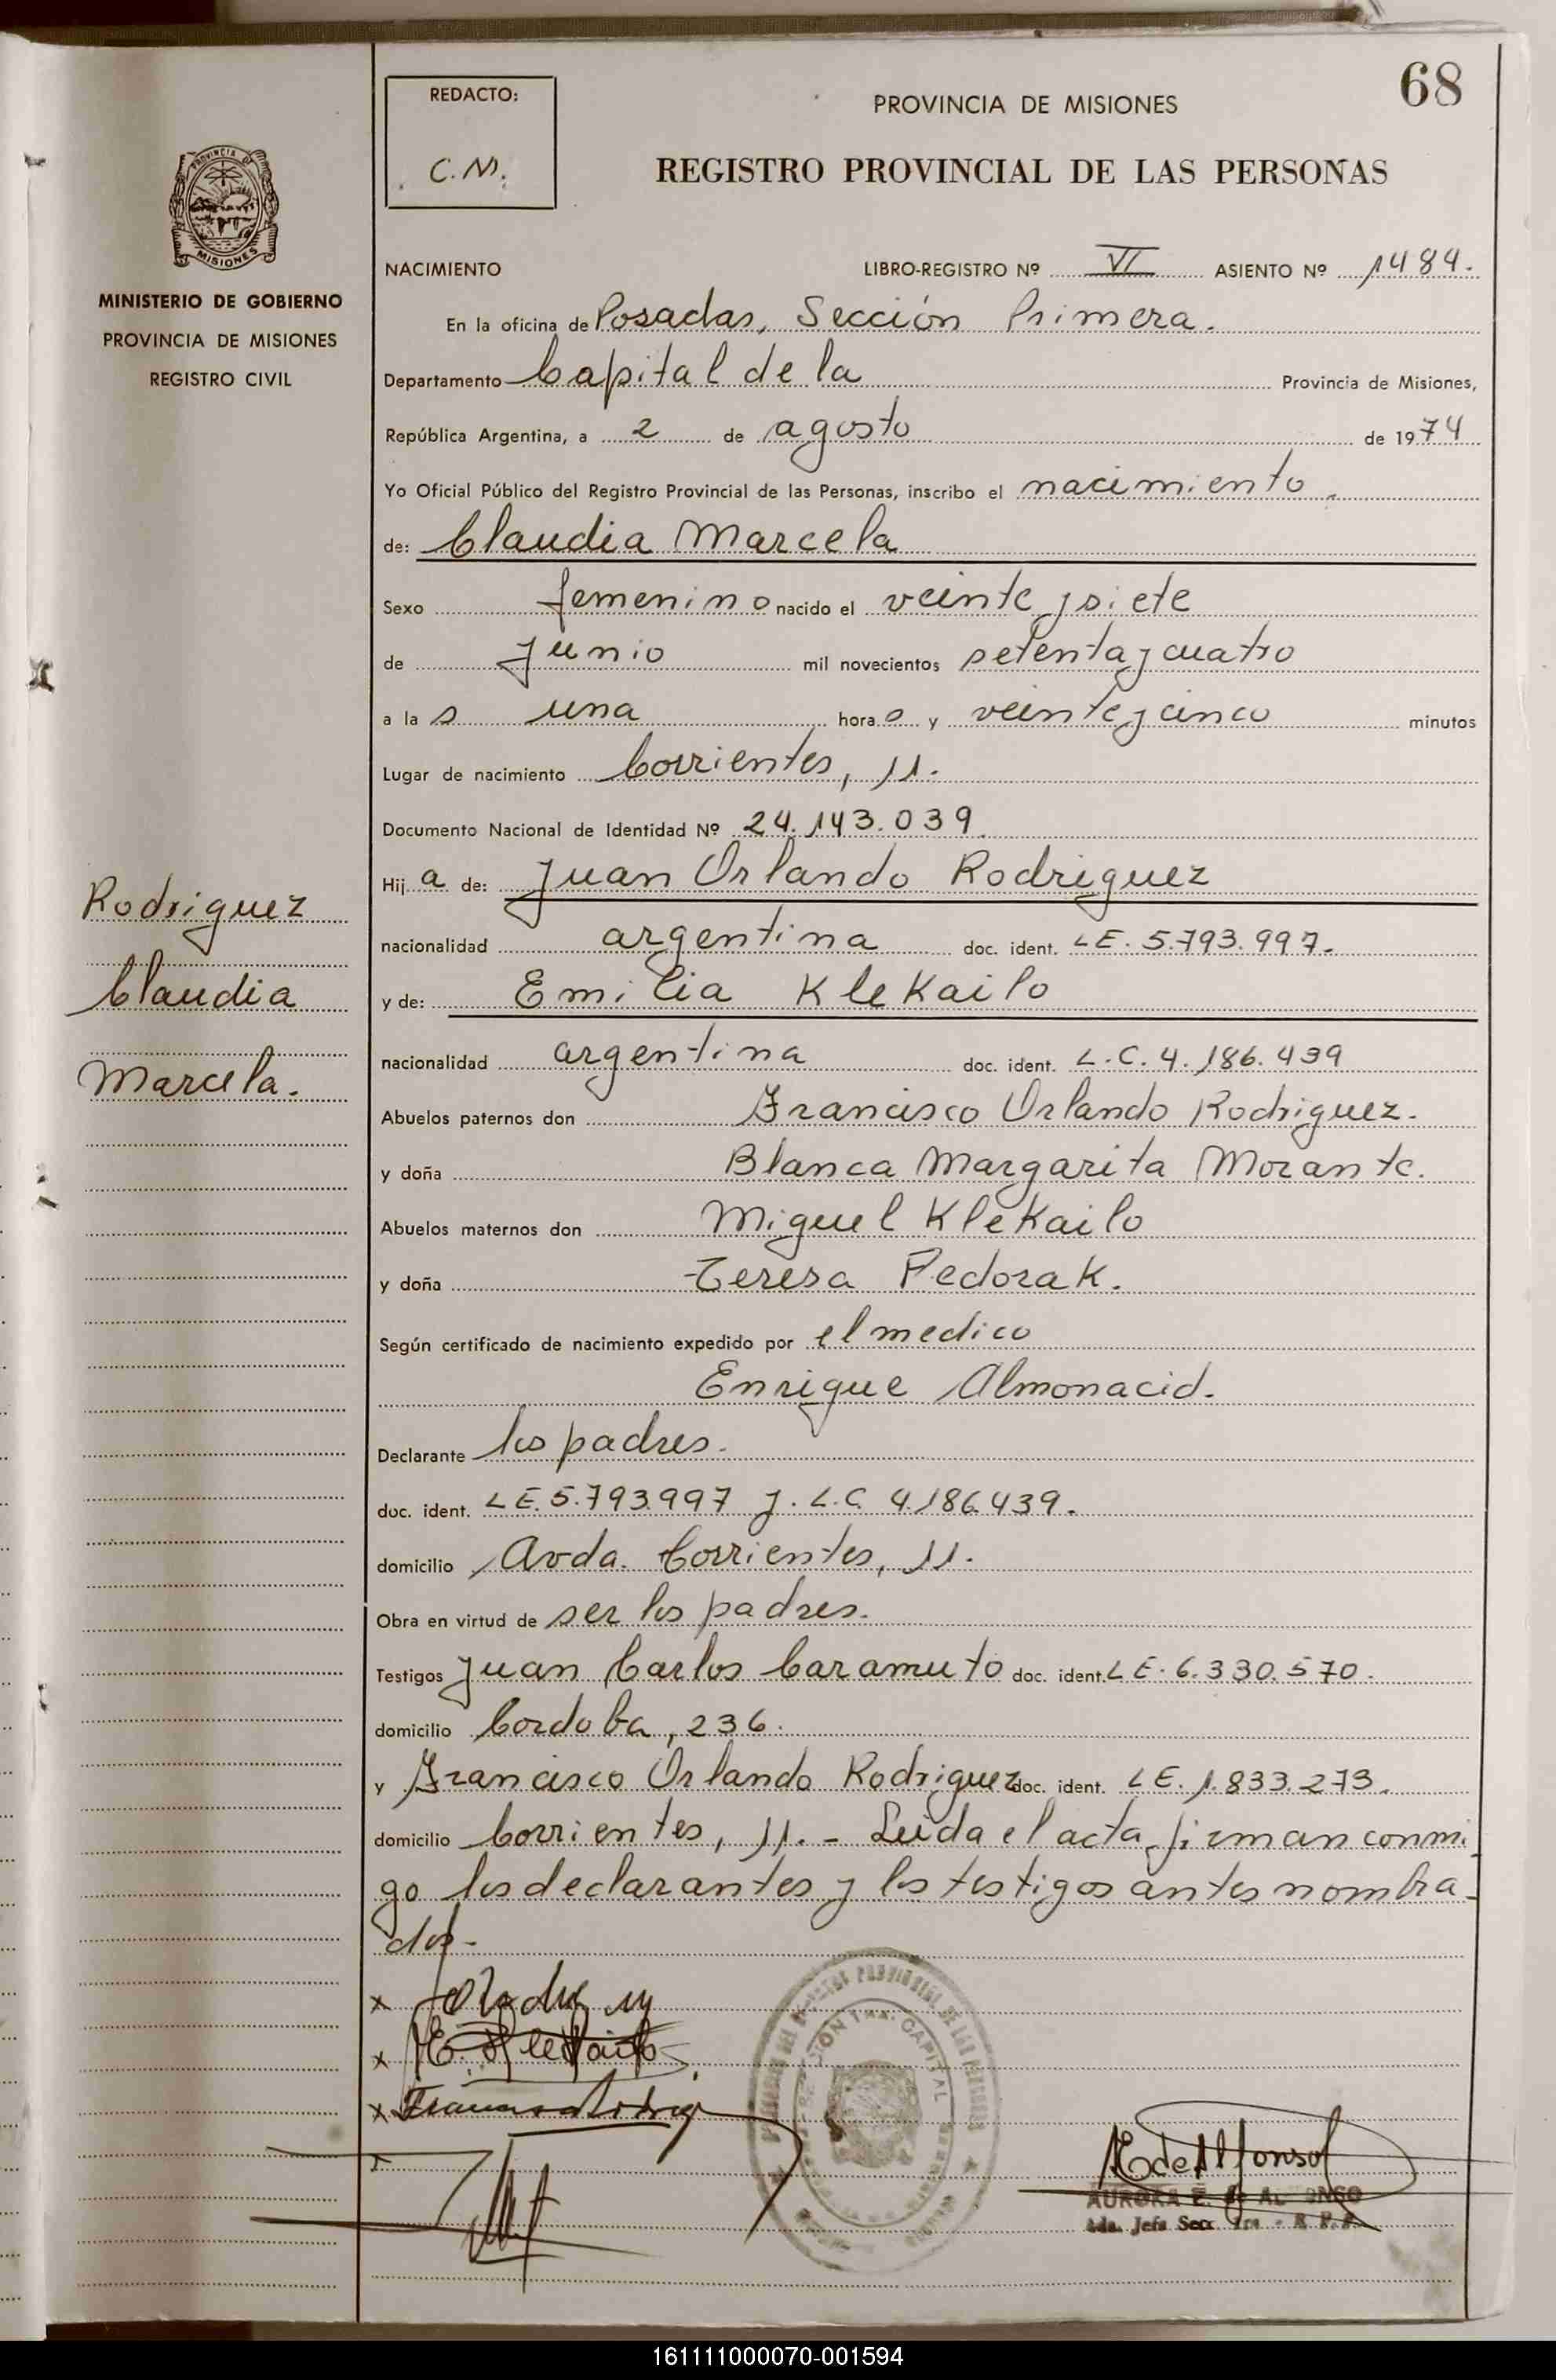 68
REDACTO:
C.M.
PROVINCIA DE MISIONES
REGISTRO PROVINCIAL DE LAS PERSONAS
PROVINCIA D
MISIONES
MINISTERIO DE GOBIERNO
PROVINCIA DE MISIONES
REGISTRO CIVIL
NACIMIENTO LIBRO-REGISTRO Nº VI ASIENTO Nº 1484.
En la oficina de Posadas, Sección Primera.
Departamento Capital de la Provincia de Misiones,
República Argentina, a 2 de agosto de 1974
Yo Oficial Público del Registro Provincial de las Personas, inscribo el nacimiento
de: Claudia Marcela
Sexo femenino nacido el veinte y siete
de Junio mil novecientos setenta y cuatro
a la s una hora o y veinte y cinco minutos
Lugar de nacimiento Corrientes, 11.
Documento Nacional de Identidad Nº 24.143.039.
Hij a de: Juan Orlando Rodriguez
nacionalidad argentina doc. ident. LE. 5.793.997.
y de: Emilia Klekailo
nacionalidad argentina doc. ident. L.C. 4.186.439
Abuelos paternos don Francisco Orlando Rodriguez.
y doña Blanca Margarita Morante.
Abuelos maternos don Miguel Klekailo
y doña Teresa Pedorak.
Según certificado de nacimiento expedido por el medico
Enrique Almonacid.
Declarante los padres.
doc. ident. LE. 5.793.997 y. L.C. 4.186.439.
domicilio Avda. Corrientes, 11.
Obra en virtud de ser los padres.
Testigos Juan Carlos Caramuto doc. ident. LE. 6.330.570.
domicilio Cordoba, 236.
y Francisco Orlando Rodriguez doc. ident. LE. 1.833.273.
domicilio Corrientes, 11. - Leida el acta firman conmi
go los declarantes y los testigos antes nombra-
dos-
Rodriguez
Claudia
Marcela.
x
x E. Klekailo
x Francisco Rodrig
x
CAPITAL
A E. de Alfonso
AURORA E. de ALFONSO
Jefa Secc. 1ra - R.P.P.
161111000070-001594